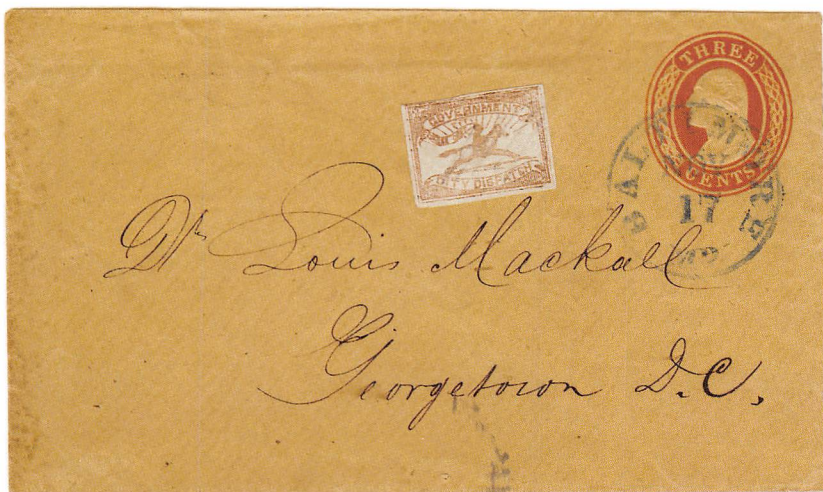 THREE
CENTS
GOVERNMENT
CITY DISPATCH
BALTIMORE
17
Md
Dr Louis Mackall
Georgetown D.C.